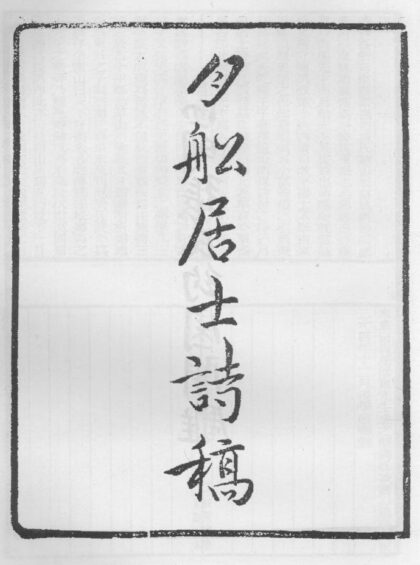 月船居士詩稿